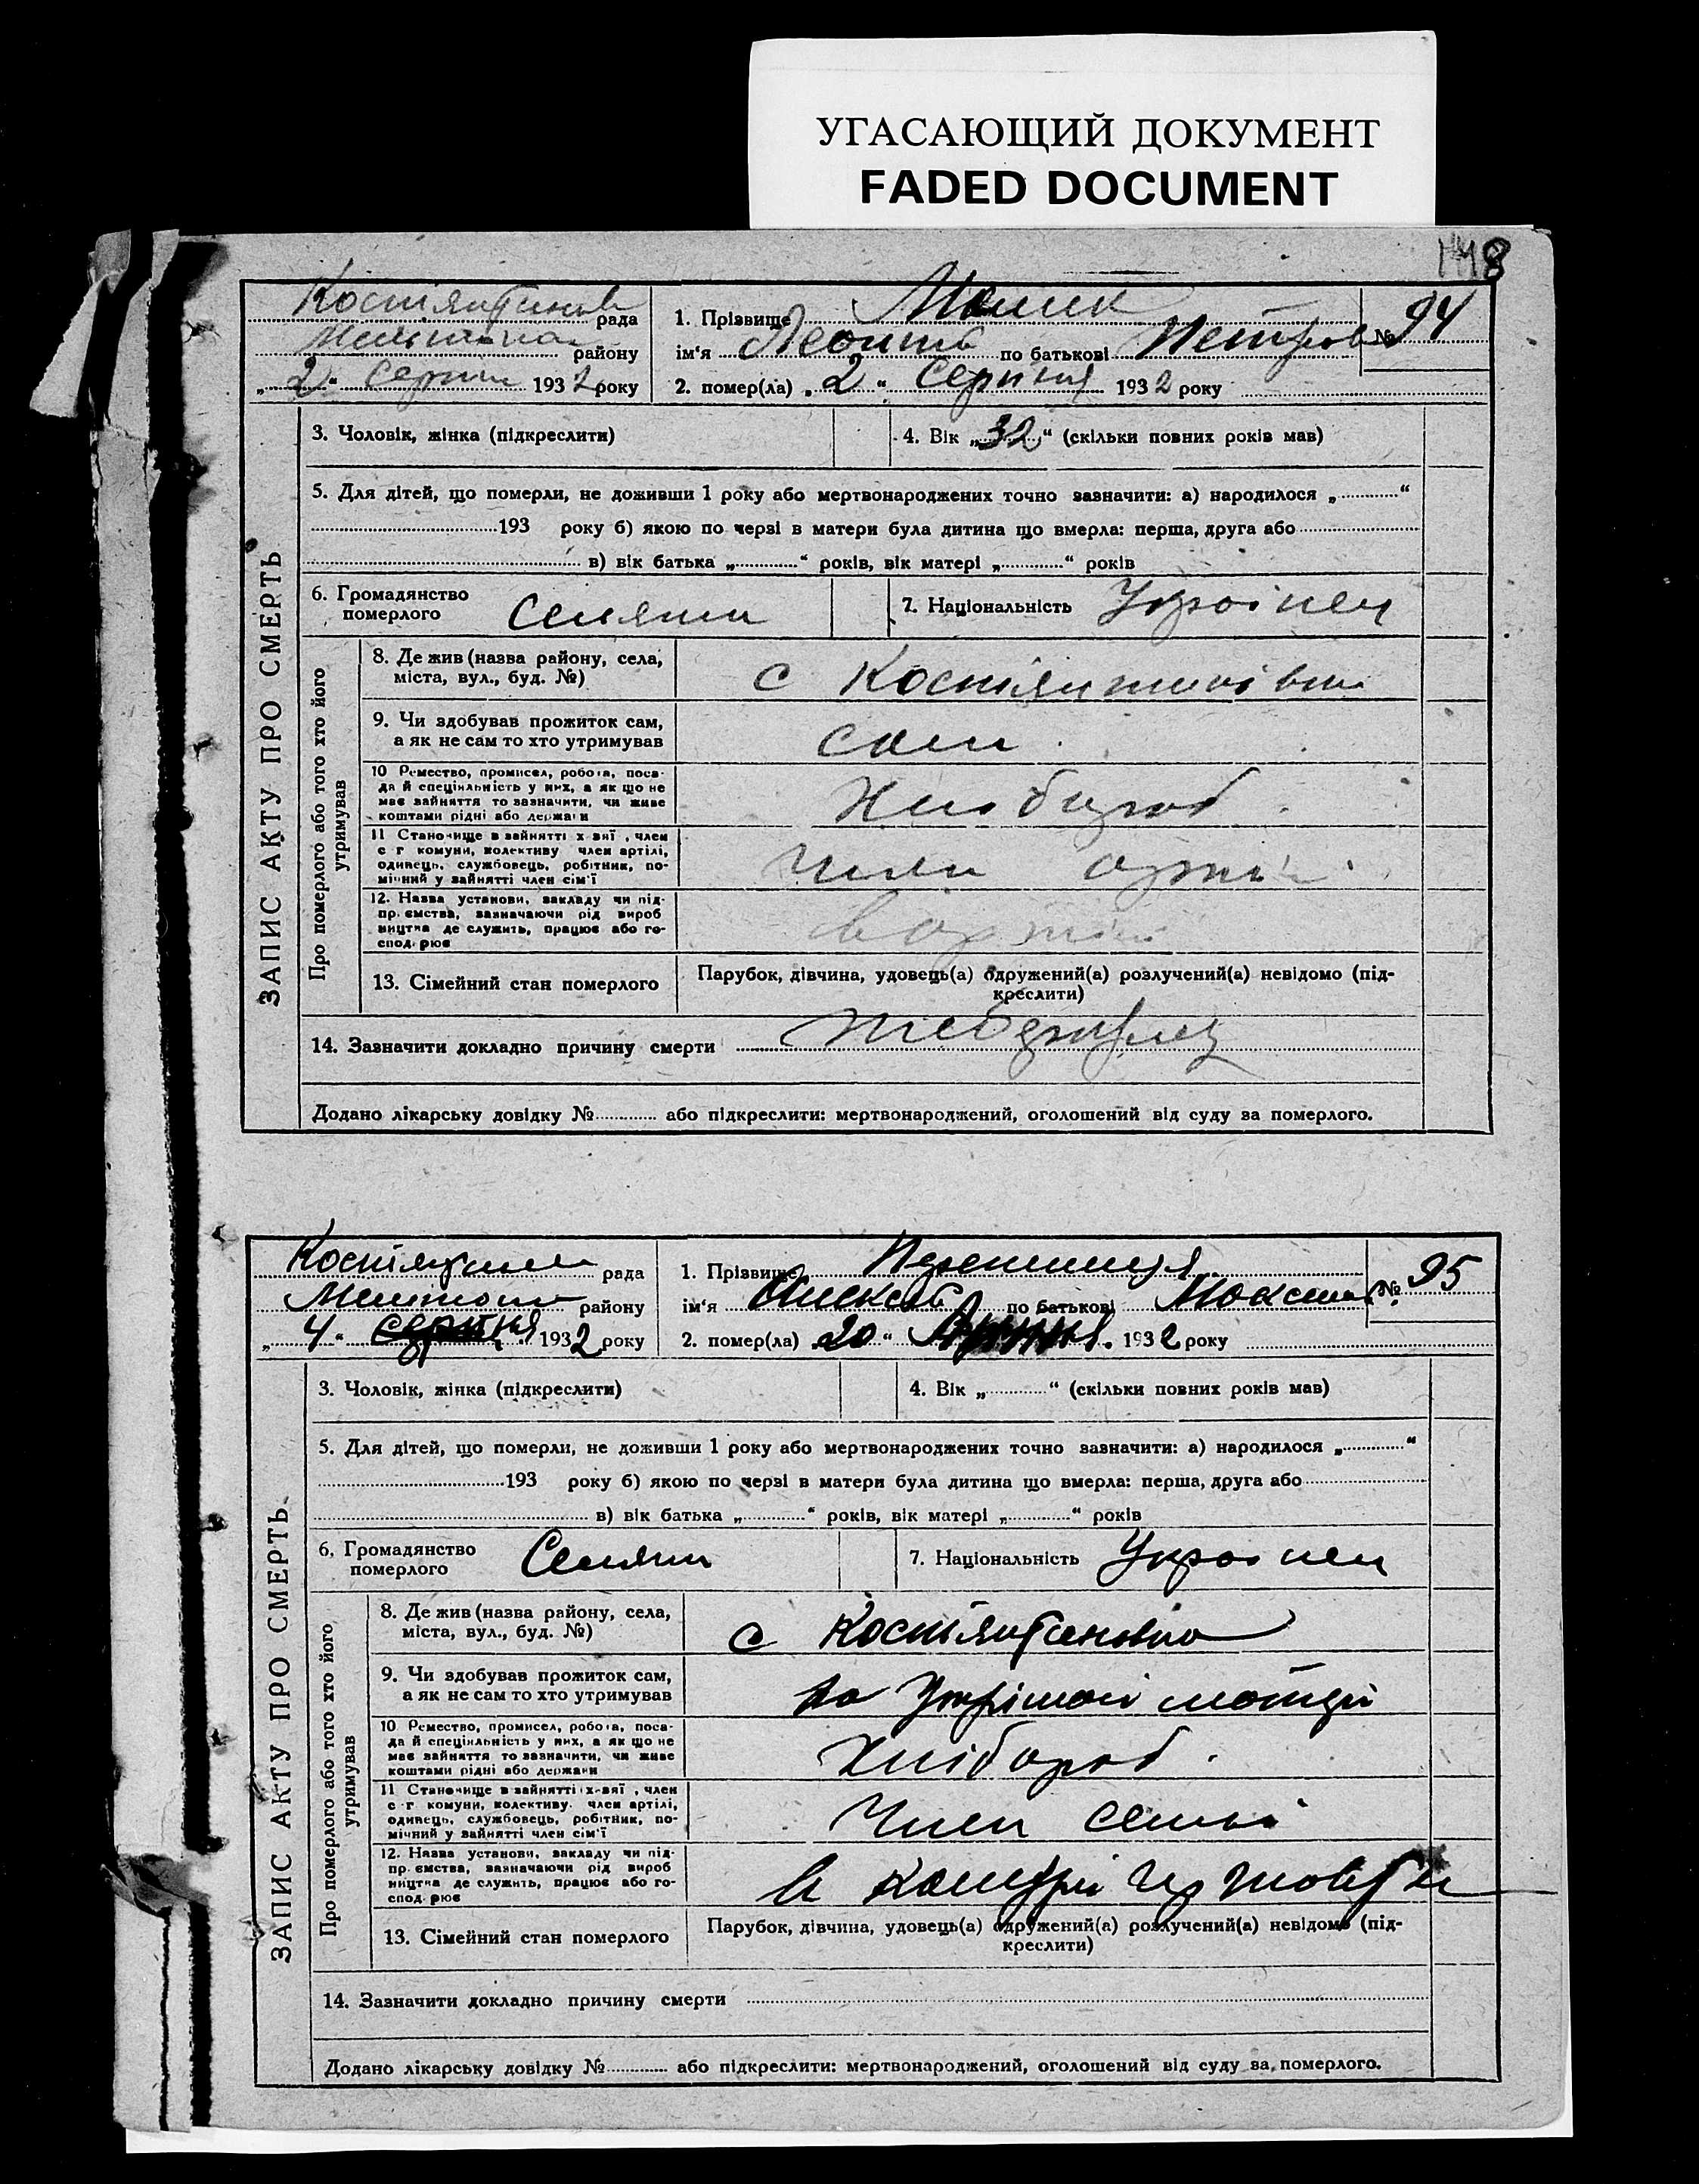 УГАСАЮЩИЙ ДОКУМЕНТ
FADED DOCUMENT
148
рада
району
„ 2 “ серпня 1932 року
1. Прізвище
№ 94
ім'я по батькові Петров
2. помер(ла) „ 2 “ Серпня 1932 року
ЗАПИС АКТУ ПРО СМЕРТЬ
3. Чоловік, жінка (підкреслити)
4. Вік „ 32 “ (скільки повних років мав)
5. Для дітей, що померли, не доживши 1 року або мертвонароджених точно зазначити: а) народилося „ “
193 року б) якою по черзі в матери була дитина що вмерла: перша, друга або
в) вік батька „ “ років, вік матері „ “ років
6. Громадянство
померлого
Селянин
7. Національність Українец
Про померлого або того хто його
утримував
8. Де жив (назва району, села,
міста, вул., буд. №)
с Костянтинівка
9. Чи здобував прожиток сам,
а як не сам то хто утримував
сам
10 Ремество, промисел, робота, поса-
да й спеціяльність у них, а як що не
має зайняття то зазначити, чи живе
коштами рідні або держави
Хлібороб
11 Становище в зайнятті х-вяї, член
с г комуни, колективу член артілі,
одинець, службовець, робітник, по-
мічний у зайнятті член сім'ї
Член артілі
12. Назва установи, закладу чи під-
пр ємства, зазначаючи рід вироб
ництва де служить, працює або го-
спод рює
в артілі
13. Сімейний стан померлого
Парубок, дівчина, удовець(а) одружений(а) розлучений(а) невідомо (під-
креслити)
14. Зазначити докладно причину смерти
Додано лікарську довідку № або підкреслити: мертвонароджений, оголошений від суду за померлого.
рада
району
„ 4 “ серпня 1932 року
1. Прізвище
№ 95
ім'я Олексій по батькові Максим
2. помер(ла) „ 20 “ 1932 року
ЗАПИС АКТУ ПРО СМЕРТЬ
3. Чоловік, жінка (підкреслити)
4. Вік „ “ (скільки повних років мав)
5. Для дітей, що померли, не доживши 1 року або мертвонароджених точно зазначити: а) народилося „ “
193 року б) якою по черзі в матери була дитина що вмерла: перша, друга або
в) вік батька „ “ років, вік матері „ “ років
6. Громадянство
померлого
Селянин
7. Національність Українец
Про померлого або того хто його
утримував
8. Де жив (назва району, села,
міста, вул., буд. №)
с Костянтиновка
9. Чи здобував прожиток сам,
а як не сам то хто утримував
на
10 Ремество, промисел, робота, поса-
да й спеціяльність у них, а як що не
має зайняття то зазначити, чи живе
коштами рідні або держави
Хлібороб
11 Становище в зайнятті х-вяї, член
с г комуни, колективу член артілі,
одинець, службовець, робітник, по-
мічний у зайнятті член сім'ї
Член семьї
12. Назва установи, закладу чи під-
пр ємства, зазначаючи рід вироб
ництва де служить, працює або го-
спод рює
в
13. Сімейний стан померлого
Парубок, дівчина, удовець(а) одружений(а) розлучений(а) невідомо (під-
креслити)
14. Зазначити докладно причину смерти
Додано лікарську довідку № або підкреслити: мертвонароджений, оголошений від суду за померлого.